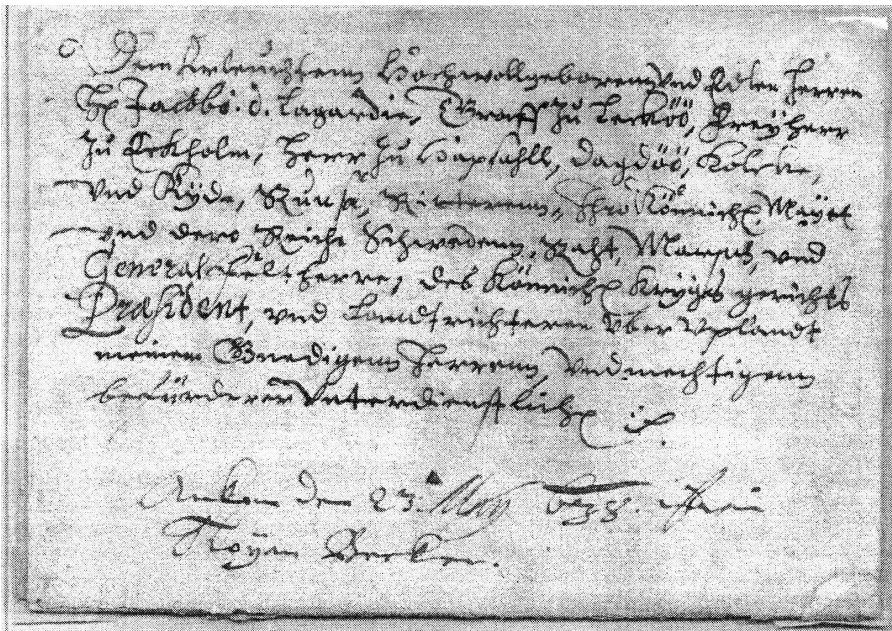 Dem Erleuchtenn Hochwollgeborenn, Vnd Edlen Herren
H. Jacobo. d. Lagardie, Graff zu Leckőő, Freyherr
zu Eckholm, Herr zu Hapsahll, Dagdőő, Kolcke,
vnd Kyda, Runsa, Ritterenn, Ihro Kőnnich. Mayet
vnd dero Reiche Schwedenn, Raht, Marsch, vnd
General Feltherre, des Kőnnich. Krygs gerichts
Præsident, vnd Landtrichteren über Vplandt
meinem Gnedigenn Herrenn, Vnd mechtigenn
befürderer Vnterdienstlich.
Ankom den 23. May 638.
Becker.